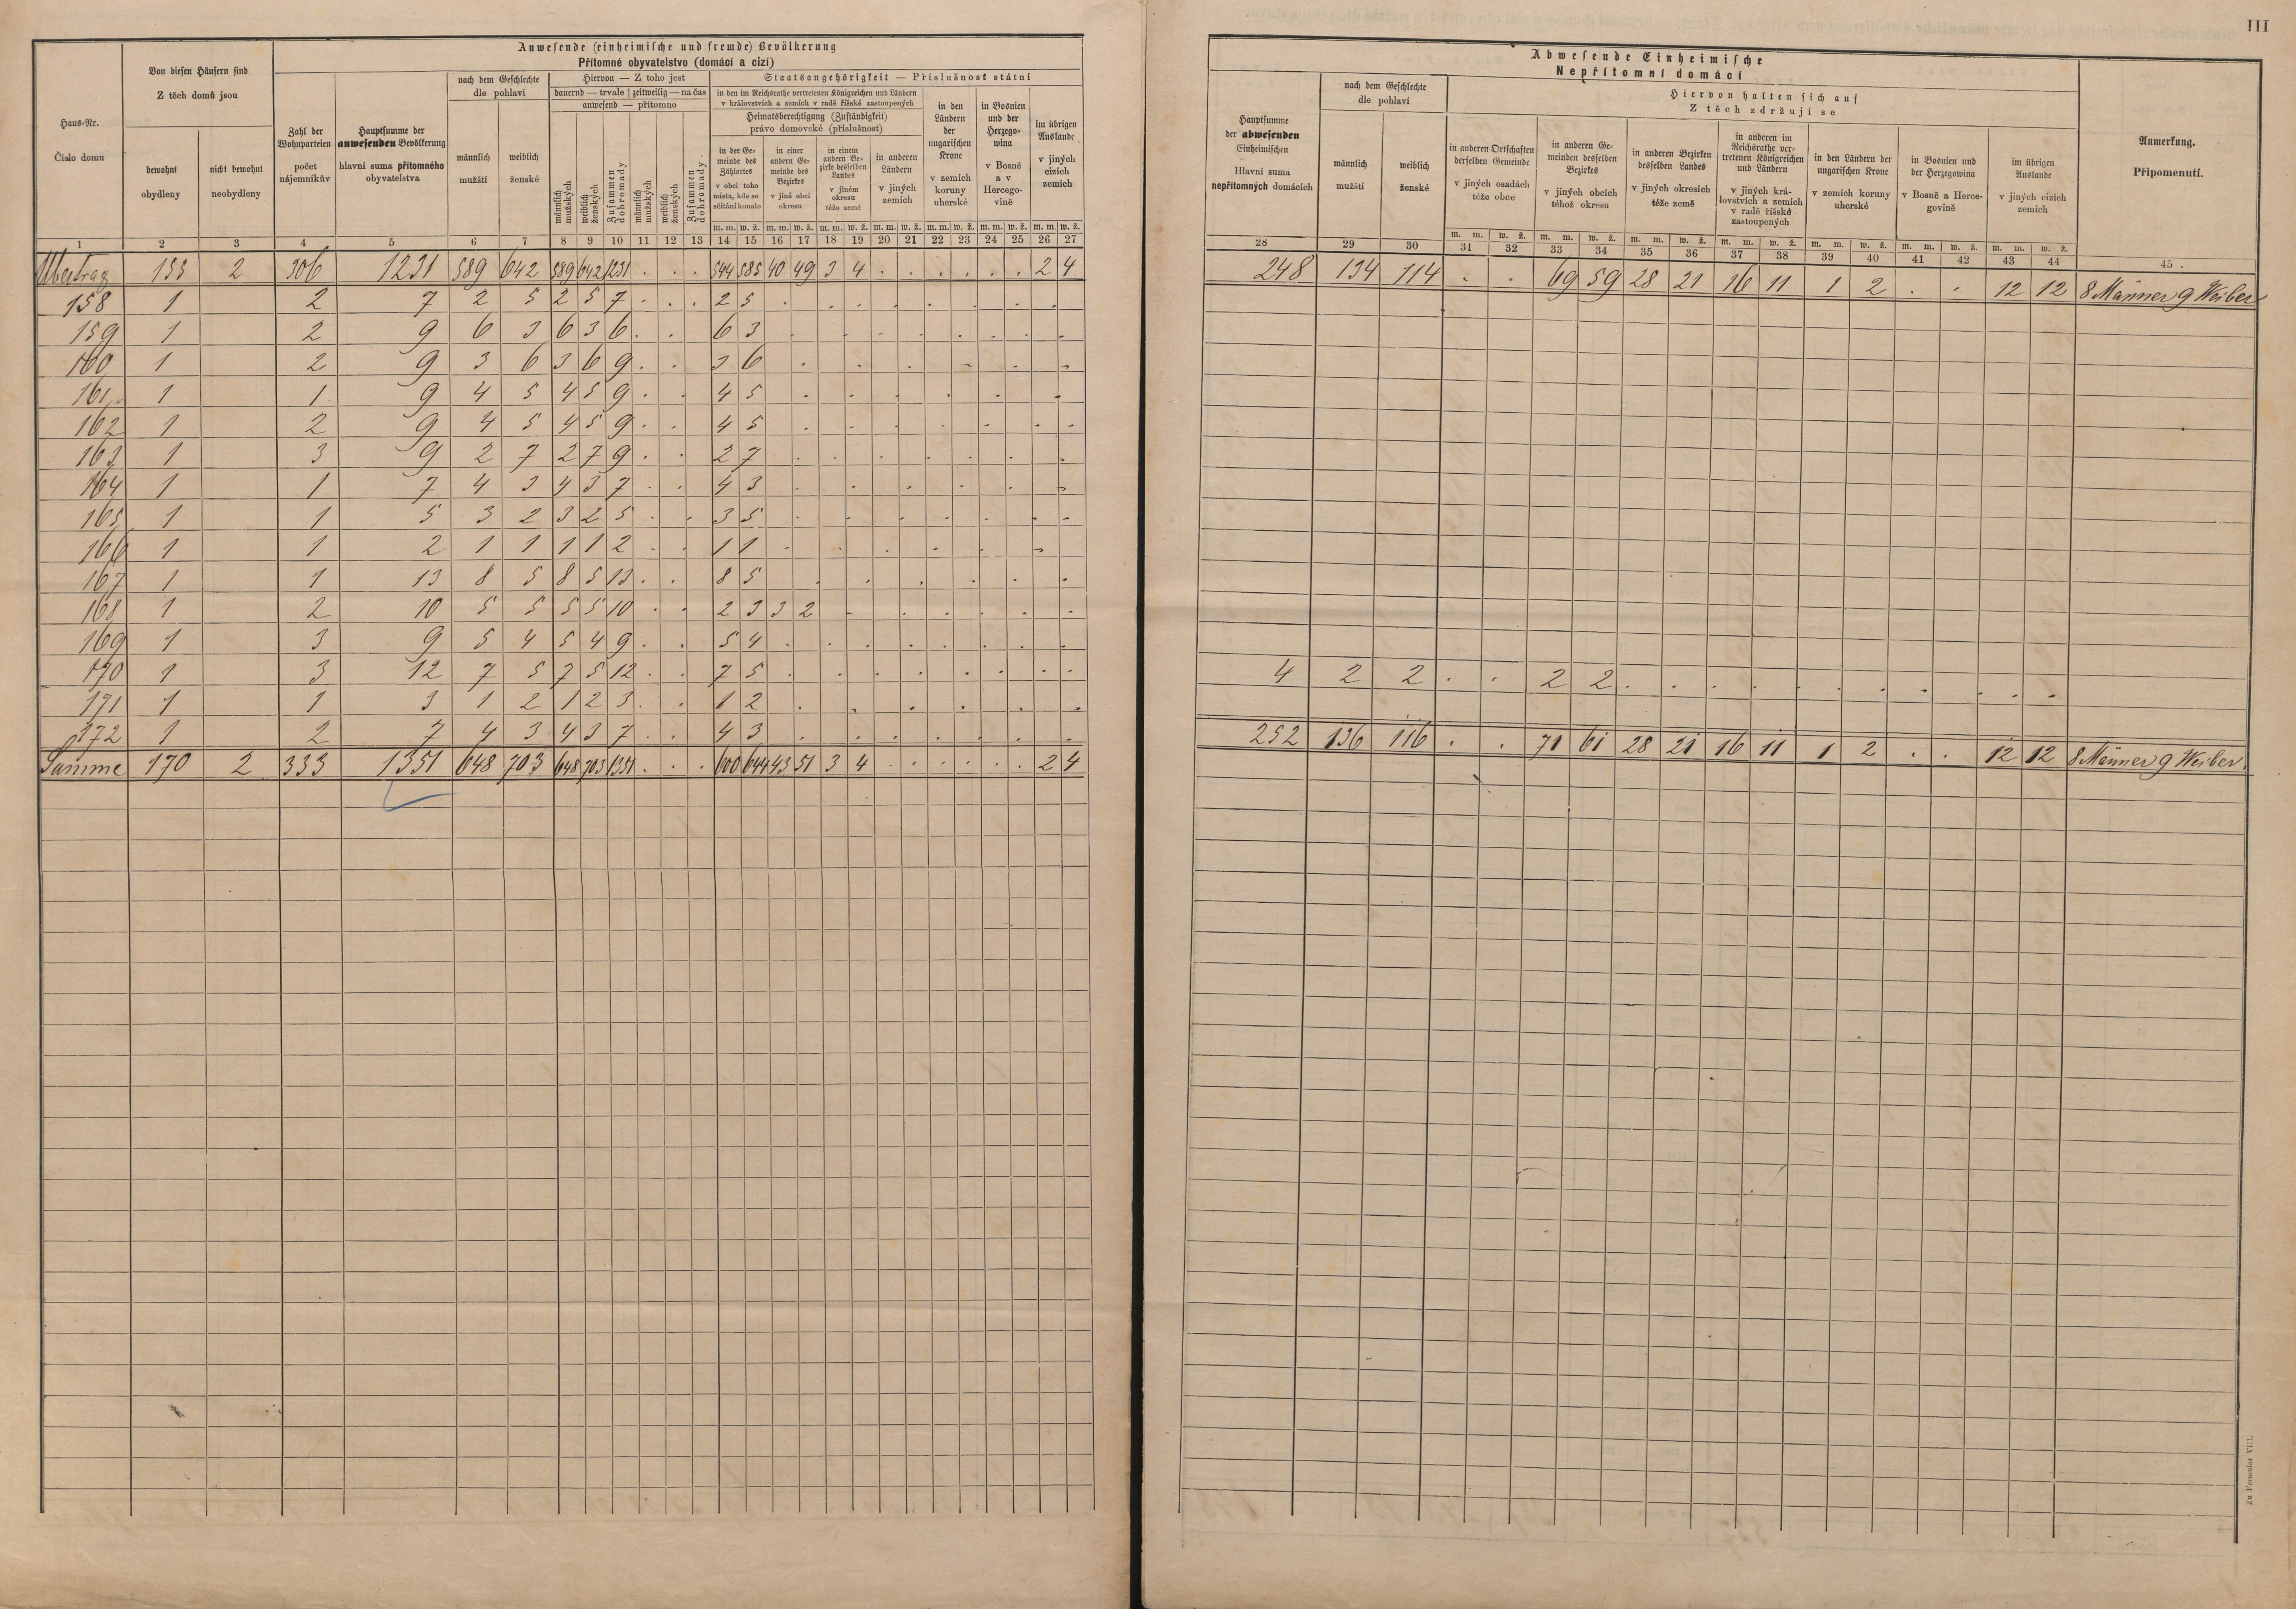 III
Anwesende (einheimische und fremde) Bevölkerung
Přítomné obyvatelstvo (domácí a cizí)
Haus-Nr.
Číslo domu
Von diesen Häusern sind
Z těch domů jsou
bewohnt
obydleny
nicht bewohnt
neobydleny
Zahl der Wohnparteien
počet nájemníkův
Hauptsumme der anwesenden Bevölkerung
hlavní suma přítomného obyvatelstva
nach dem Geschlechte
dle pohlaví
männlich
mužští
weiblich
ženské
Hiervon — Z toho jest
dauernd — trvale | zeitweilig — na čas
anwesend — přítomno
männlich mužských
weiblich ženských
Zusammen dohromady
männlich mužských
weiblich ženských
Zusammen dohromady
Staatsangehörigkeit — Příslušnost státní
in den im Reichsrathe vertretenen Königreichen und Ländern
v královstvích a zemích v radě říšské zastoupených
Heimatsberechtigung (Zuständigkeit)
právo domovské (příslušnost)
in der Gemeinde des Zählortes
v obci toho místa, kde se sčítání konalo
in einer andern Gemeinde des Bezirkes
v jiné obci okresu
in einem andern Bezirke desselben Landes
v jiném okresu téže země
in anderen Ländern
v jiných zemích
in den Ländern der ungarischen Krone
v zemích koruny uherské
in Bosnien und der Herzegowina
v Bosně a v Hercegovině
im übrigen Auslande
v jiných cizích zemích
m. m. w. ž. m. m. w. ž. m. m. w. ž. m. m. w. ž. m. m. w. ž. m. m. w. ž. m. m. w. ž.
1 2 3 4 5 6 7 8 9 10 11 12 13 14 15 16 17 18 19 20 21 22 23 24 25 26 27
Übertrag 155 2 306 1231 589 642 589 642 1231 . . . 544 585 40 49 3 4 . . . . . . 2 4
158 1 2 7 2 5 2 5 7 . . . 2 5
159 1 2 9 6 3 6 3 6 . . 6 3
160 1 2 9 3 6 3 6 9 . . 3 6
161 1 1 9 4 5 4 5 9 . . 4 5
162 1 2 9 4 5 4 5 9 . . 4 5
163 1 3 9 2 7 2 7 9 . . 2 7
164 1 1 7 4 3 4 3 7 . . 4 3
165 1 1 5 3 2 3 2 5 . . 3 5
166 1 1 2 1 1 1 1 2 . . 1 1
167 1 1 13 8 5 8 5 13 . . 8 5
168 1 2 10 5 5 5 5 10 . . 2 3 3 2
169 1 3 9 5 4 5 4 9 . . 5 4
170 1 3 12 7 5 7 5 12 . . 7 5
171 1 1 3 1 2 1 2 3 . . 1 2
172 1 2 7 4 3 4 3 7 . . 4 3
Summe 170 2 333 1351 648 703 648 703 1351 . . . 600 644 43 51 3 4 . . . . . . 2 4
Abwesende Einheimische
Nepřítomní domácí
Hauptsumme der abwesenden Einheimischen
Hlavní suma nepřítomných domácích
nach dem Geschlechte
dle pohlaví
männlich
mužští
weiblich
ženské
Hiervon halten sich auf
Z těch zdržují se
in anderen Ortschaften derselben Gemeinde
v jiných osadách téže obce
in anderen Gemeinden desselben Bezirkes
v jiných obcích téhož okresu
in anderen Bezirken desselben Landes
v jiných okresích téže země
in anderen im Reichsrathe vertretenen Königreichen und Ländern
v jiných královstvích a zemích v radě říšské zastoupených
in den Ländern der ungarischen Krone
v zemích koruny uherské
in Bosnien und der Herzegowina
v Bosně a Hercegovině
im übrigen Auslande
v jiných cizích zemích
Anmerkung.
Připomenutí.
m. m. w. ž. m. m. w. ž. m. m. w. ž. m. m. w. ž. m. m. w. ž. m. m. w. ž. m. m. w. ž.
28 29 30 31 32 33 34 35 36 37 38 39 40 41 42 43 44 45
248 134 114 . . 69 59 28 21 16 11 1 2 . . 12 12 8 Männer 9 Weiber
4 2 2 . . 2 2 . . . . . . . . . .
252 136 116 . . 71 61 28 21 16 11 1 2 . . 12 12 8 Männer 9 Weiber.
Zu Formular VIII.